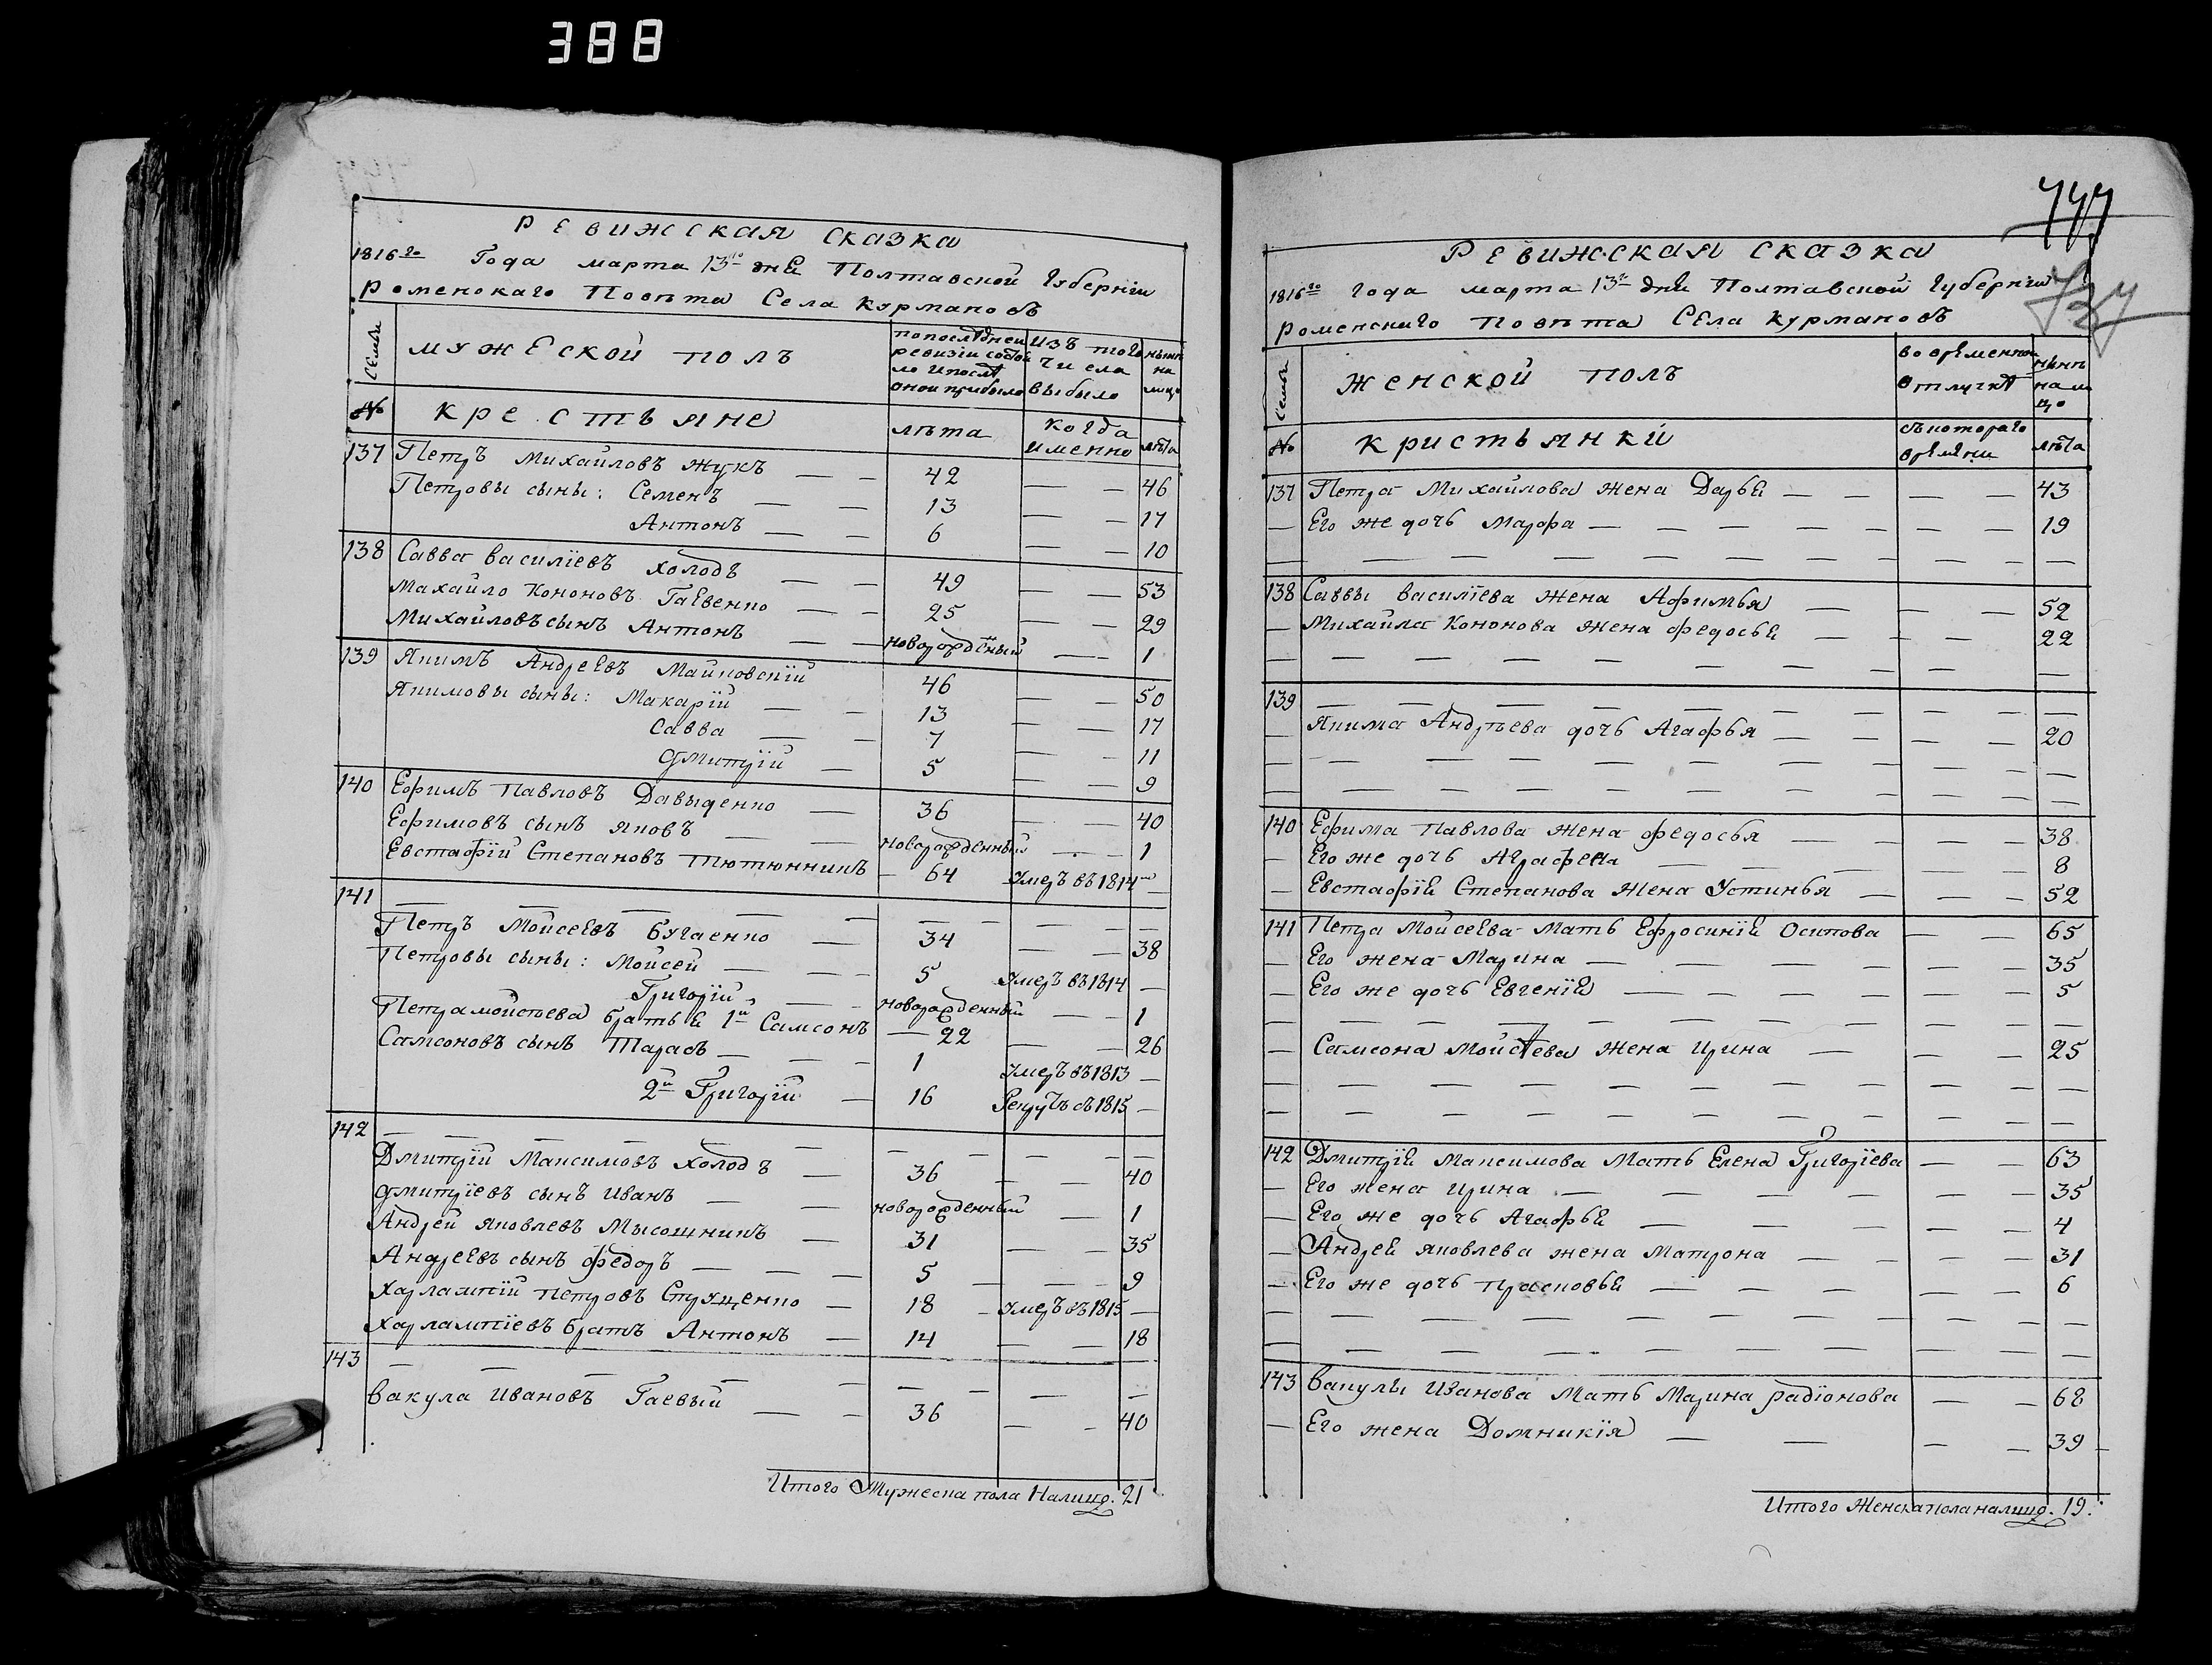 388
РЕВИЖСКАЯ СКАЗКА
1816го Года марта 13го дня Полтавской Губернии
Роменскаго Повѣта Села Курмановъ
Семьи
МУЖЕСКОЙ ПОЛЪ
по последней ревизіи состояло и после оной прибыло
изъ того числа выбыло
нынѣ на лицо
№
КРЕСТЬЯНЕ
лѣта
когда именно
лѣта
137 Петръ Михайловъ Жукъ — — 42 — — 46
Петровы сыны: Семенъ — — 13 — — 17
Антонъ — — 6 — — 10
138 Савва Василіевъ Холодъ — — 49 — — 53
Махайло Кононовъ Гаевенко — — 25 — — 29
Михайловъ сынъ Антонъ — — новорожденый — — 1
139 Якимъ Андреевъ Майковскій 46 — — 50
Якимовы сыны: Макарій — — 13 — — 17
Савва — — 7 — — 11
Дмитрій — 5 — — 9
140 Ефимъ Павловъ Давыденко — 36 — — 40
Ефимовъ сынъ Яковъ — — новорожденный — — 1
Евстафій Степановъ Тютюнникъ — 64 Умеръ въ 1814м —
141 — — — — — — — — — —
Петръ Мойсеевъ Бугаенко — 34 — — 38
Петровы сыны: Мойсей — — 5 Умеръ въ 1814 —
Григорій — — новорожденный — — 1
Петра мойсѣева братья 1й Самсонъ — 22 — — 26
Самсоновъ сынъ Тарасъ — — — 1 Умеръ въ 1813 —
2й Григорій — 16 Рекрутъ съ 1815 —
142 — — — — — — — — — —
Дмитрій Максимовъ Холодъ — 36 — — 40
Дмитріевъ сынъ Иванъ — — новорожденный — 1
Андрей Яковлевъ Мысощникъ — 31 — — 35
Андреевъ сынъ Федоръ — — — 5 — — — 9
Харлампій Петровъ Струщенко — 18 — Умеръ въ 1815 —
Харлампіевъ братъ Антонъ — 14 — — 18
143 — — — — — — — — —
Вакула Ивановъ Гаевый — — 36 — — 40
Итого Мужеска пола Налицо. 21
747
737
РЕВИЖСКАЯ СКАЗКА
1816го года марта 13го дня Полтавской Губерніи
Роменскаго Повѣта Села Курмановъ
Семьи
ЖЕНСКОЙ ПОЛЪ
во временной отлучкѣ
нынѣ на лицо
№
КРИСТЬЯНКИ
съ котораго времени
лѣта
137 Петра Михайлова жена Дарья — — — — 43
— Его же дочь Марфа — — — — — — — — 19
— — — — — — — — — — —
138 Саввы Василіева жена Афимья — — — 52
— Михайла Кононова жена Федосья — — — — 22
— — — — — — — — — — —
139 — — — — — — — — — —
— Якима Андрѣева дочь Агафья — — — — 20
— — — — — — — — — — —
— — — — — — — — — — —
140 Ефима Павлова жена Федосья — — — — 38
— Его же дочь Аграфена — — — — — 8
— Евстафія Степанова Жена Устинья — — — 52
141 Петра Мойсеева Мать Ефросинія Осипова — — 65
— Его жена Марина — — — — — — — 35
— Его же дочь Евгенія — — — — — — 5
— — — — — — — — — — —
— Самсона Мойсѣева Жена Ирина — — — 25
— — — — — — — — — — —
— — — — — — — — — — —
142 Дмитрія Максимова Мать Елена Григоріева — — 63
— Его жена Ирина — — — — — — — 35
— Его же дочь Агафья — — — — — — 4
— Андрея Яковлева жена Матрона — — — — — 31
— Его же дочь Прасковья — — — — — — 6
— — — — — — — — — — —
— — — — — — — — — — —
143 Вакулы Иванова Мать Марина Радіонова — — 68
— Его жена Домникія — — — — 39
Итого Женска пола налицо. 19.